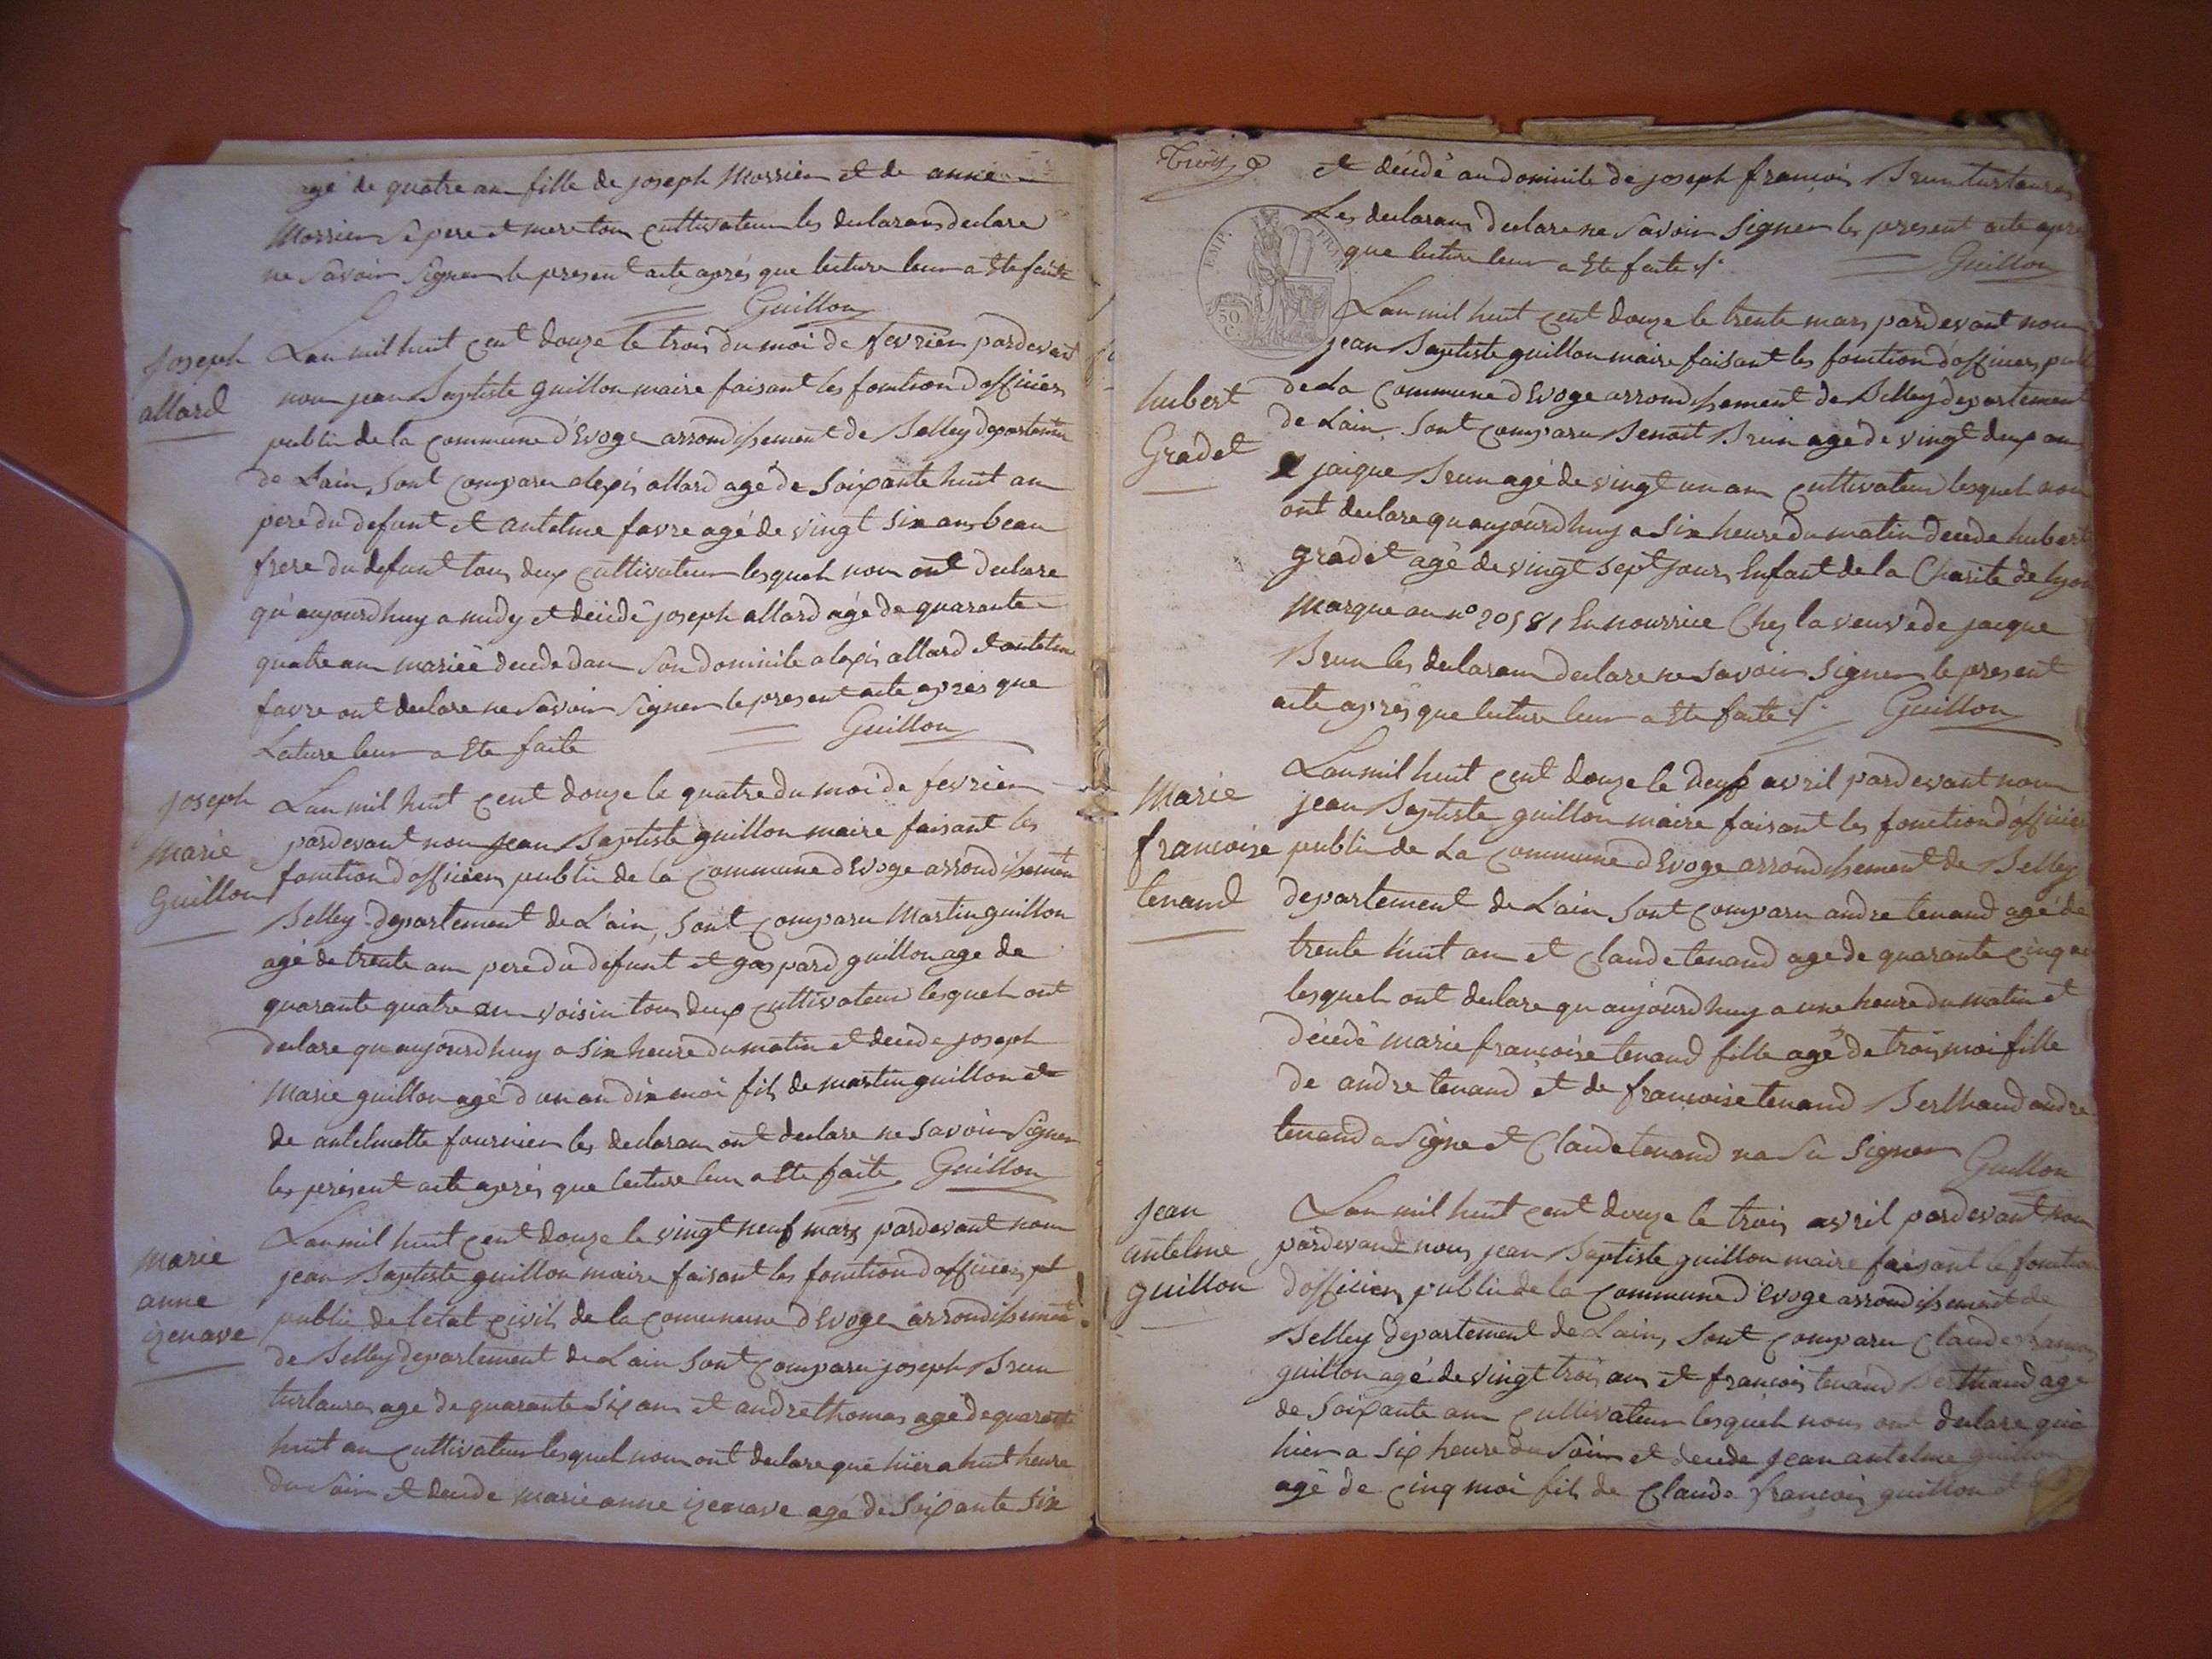 agé de quatre an fille de joseph Morrier et de anne
Morrier se pere et mere tous cultivateur les declarans declare
ne savoir signer le present acte aprés que lecture leur a ete faite
Guillon
Joseph
allard
Lan mil huit cent douze le trois du moi de fevrier pardevant
nou jean Baptiste guillon maire faisant les fonction d'officier
public de la commune d'Evoge arrondissement de Belley departement
de Lain, sont comparu alexis allard agé de soixante huit an
pere du defunt et antelme favre agé de vingt six ans beau
frere du defunt tous deux cultivateur lesquels nou ont declare
qu'aujourdhuy a midy et décidé joseph allard agé de quarante
quatre an mariée decede dans son domicile alexis allard et antelme
favre ont declare ne savoir signer le present acte aprés que
Lecture leur a ete faite
Guillon
joseph
marie
Guillon
Lan mil huit cent douze le quatre du moi de fevrier
pardevant nou jean Baptiste guillon maire faisant les
fonction d'officier public de la commune d'Evoge arrondissement
Belley departement de L'ain, sont comparu Martin guillon
agé de trente an pere du defunt et gaspard guillon age de
quarante quatre an voisin tous deux cultivateur lesquels ont
declare qu'aujourdhuy a six heure du matin et decede joseph
Marie guillon agé d'un an dix moi fils de martin guillon et
de antelmette fournier les declaran ont declare ne savoir signer
les présent acte aprés que lecture leur a ete faite Guillon
marie
anne
izenave
Lan mil huit cent douze le vingt neuf mars pardevant nou
jean Baptiste guillon maire faisant les fonction d'officier
public de letat civil de la commune d'Evoge arrondissement
de Belley departement de Lain sont comparu joseph Brun
turlauras age de quarante six ans et andre thomas age de quarante
huit an cultivateur lesquel nou ont declare que hier a huit heure
du soir et decede marie anne izenave agé de soixante six
Trois
et décidé au domicile de joseph francois Brun turlauras
Les declarans declare ne savoir signer les present acte apres
que lecture leur a ete faite
Guillon
EMP. FRA
50 C.
hubert
Gradet
Lan mil huit cent douze le trente mars pardevant nou
jean Baptiste guillon maire faisant les fonction d'officier
de La commune d'Evoge arrondissement de Belley departement
de Lain, sont comparu Benoit Brun agé de vingt deux an
jaique Brun agé de vingt un an cultivateur lesquel nou
ont declare qu'aujourdhuy a six heure du matin decede hubert
gradet agé de vingt sept jours Enfant de la Charite de lyon
Marque au no 20581 En nourrice Chez la veuve de jacque
Brun les declaran declare ne savoir signer le present
acte aprés que lecture leur a ete faite Guillon
Marie
francoise
tenand
Lan mil huit cent douze le deux avril pardevant nou
jean Baptiste guillon maire faisant les fonction d'officier
public de La commune d'Evoge arrondissement de Belley
departement de Lain sont comparu andre tenand agé de
trente huit an et Claude tenand age de quarante cinq an
lesquels ont declare qu'aujourdhuy a une heure du matin et
décidé marie francoise tenand fille agé de trois moi fille
de andre tenand et de francoise tenand Berthaud andre
tenand a signe et Claude tenand na su signer
Guillon
jean
antelme
guillon
Lan mil huit cent douze le trois avril pardevant nou
pardevant nous jean Baptiste guillon maire faisant le fonction
d'officier public de la commune d'Evoge arrondissement de
Belley departement de Lain, sont comparu Claude francois
guillon agé de vingt trois ans et francois tenand Berthaud agé
de soixante an cultivateur lesquels nous ont declare que
hier a six heure du soir et decede jean antelme guillon
agé de cinq moi fils de Claude francois guillon et